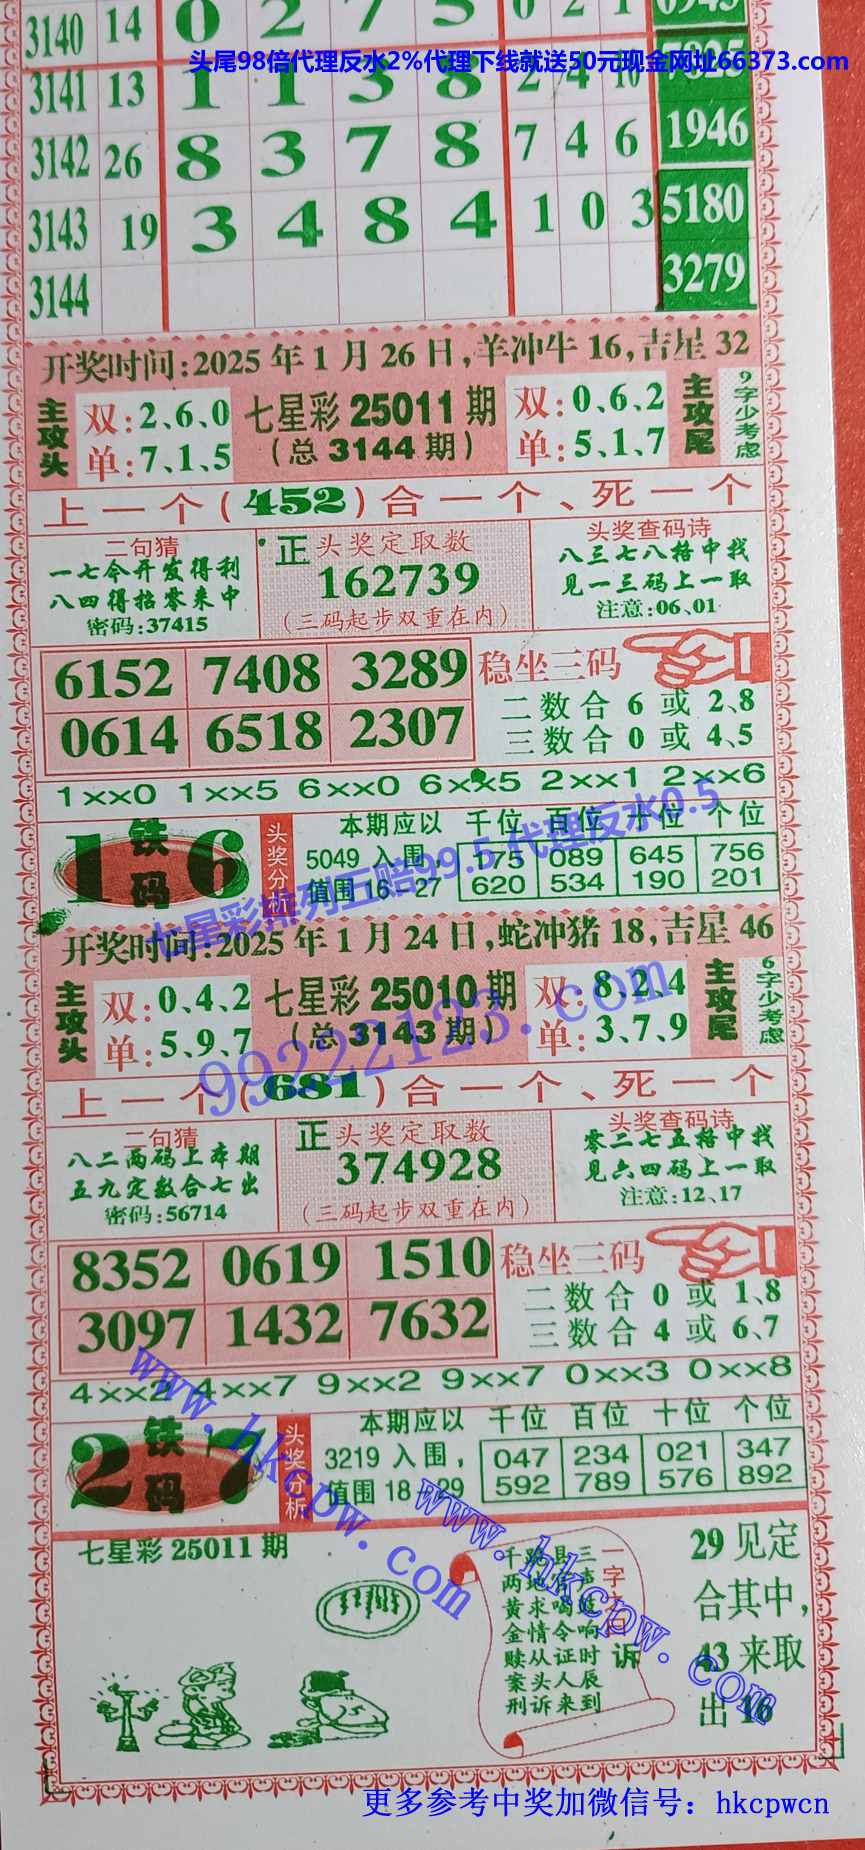 3140 14 0 2 7 5 0 2 1 6943
头尾98倍代理反水2%代理下线就送50元现金网址66373.com
3141 13 1 1 3 8 2 4 10
3142 26 8 3 7 8 7 4 6 1946
3143 19 3 4 8 4 1 0 3 5180
3144 3279
开奖时间:2025年1月26日,羊冲牛16,吉星32
主攻头
双:2、6、0
单:7、1、5
七星彩25011期
(总3144期)
双:0、6、2
单:5、1、7
主攻尾
9字少考虑
上一个(452)合一个、死一个
二句猜
一七今开发得利
八四得拾零来中
密码:37415
正 头奖定取数
162739
(三码起步双重在内)
头奖查码诗
八三七八格中找
见一三码上一取
注意:06、01
6152 7408 3289
0614 6518 2307
稳坐三码
二数合6或2、8
三数合0或4、5
1××0 1××5 6××0 6××5 2××1 2××6
1 铁码 6
头奖分析
本期应以
5049入围,
值围16–27
千位 百位 十位 个位
175 089 645 756
620 534 190 201
七星彩排列五赔99.5 代理反水0.5
开奖时间:2025年1月24日,蛇冲猪18,吉星46
主攻头
双:0、4、2
单:5、9、7
七星彩25010期
(总3143期)
双:8、2、4
单:3、7、9
主攻尾
6字少考虑
99222123.com
上一个(681)合一个、死一个
二句猜
八二两码上本期
五九定数合七出
密码:56714
正 头奖定取数
374928
(三码起步双重在内)
头奖查码诗
零二七五格中找
见六四码上一取
注意:12、17
8352 0619 1510
3097 1432 7632
稳坐三码
二数合0或1、8
三数合4或6、7
4××2 4××7 9××2 9××7 0××3 0××8
2 铁码 7
头奖分析
本期应以
3219入围,
值围18–29
千位 百位 十位 个位
047 234 021 347
592 789 576 892
www.hkcpw.com
www.hkcpw.com
七星彩25011期
一字
诉
三声 响时辰到
县 喝令证人来
千两黄金赎案刑
地求情从头诉
29见定
合其中,
43来取
出16
更多参考中奖加微信号：hkcpwcn